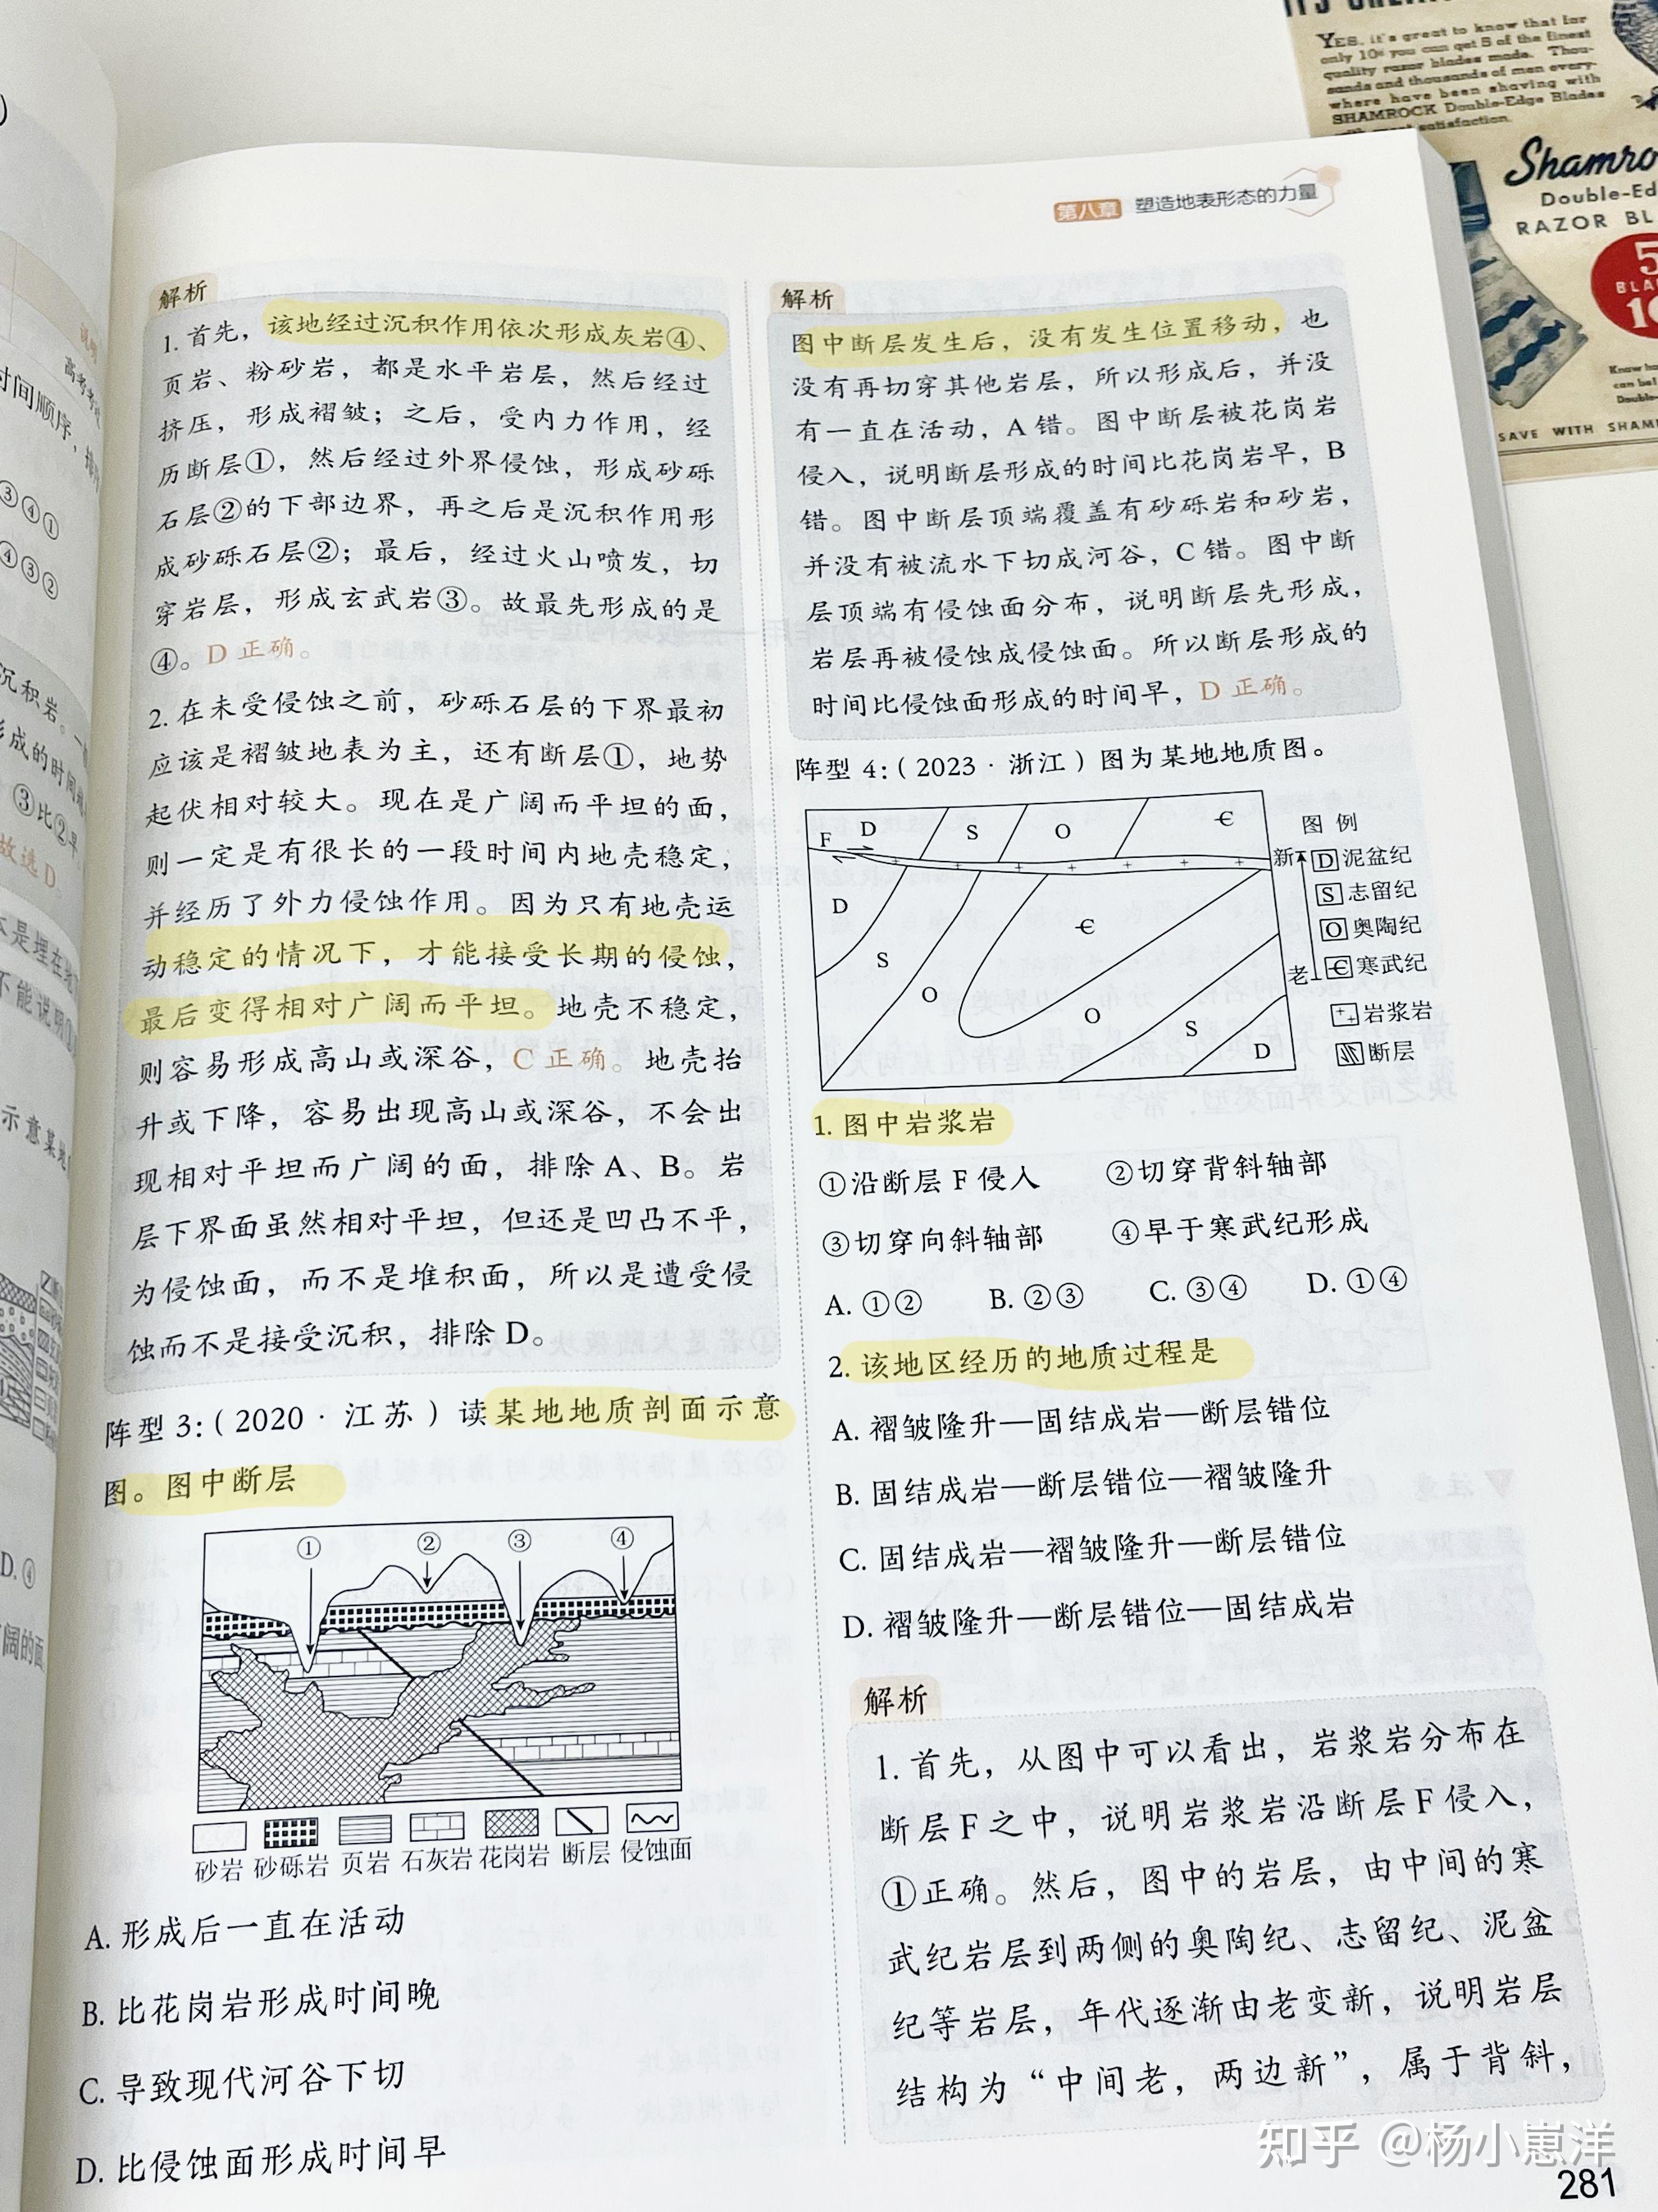 YES, it's great to know that for
only 10¢ you can get 5 of the finest
quality razor blades made. Thou-
sands and thousands of men every-
where have been shaving with
SHAMROCK Double-Edge Blades
satisfaction.
Shamro
Double-Ed
RAZOR BL
5
BLA
10
SAVE WITH SHAM
第八章 塑造地表形态的力量
时间顺序，
③④①
④③②
沉积岩。一
形成的时间
③比②早
故选D。
不是埋在地
不能说明①
示意某地
D. ④
阔的面
解析
1. 首先，该地经过沉积作用依次形成灰岩④、
页岩、粉砂岩，都是水平岩层，然后经过
挤压，形成褶皱；之后，受内力作用，经
历断层①，然后经过外界侵蚀，形成砂砾
石层②的下部边界，再之后是沉积作用形
成砂砾石层②；最后，经过火山喷发，切
穿岩层，形成玄武岩③。故最先形成的是
④。D 正确。
2. 在未受侵蚀之前，砂砾石层的下界最初
应该是褶皱地表为主，还有断层①，地势
起伏相对较大。现在是广阔而平坦的面，
则一定是有很长的一段时间内地壳稳定，
并经历了外力侵蚀作用。因为只有地壳运
动稳定的情况下，才能接受长期的侵蚀，
最后变得相对广阔而平坦。地壳不稳定，
则容易形成高山或深谷，C 正确。地壳抬
升或下降，容易出现高山或深谷，不会出
现相对平坦而广阔的面，排除 A、B。岩
层下界面虽然相对平坦，但还是凹凸不平，
为侵蚀面，而不是堆积面，所以是遭受侵
蚀而不是接受沉积，排除 D。
阵型 3:（2020 · 江苏）读某地地质剖面示意
图。图中断层
① ② ③ ④
砂岩 砂砾岩 页岩 石灰岩 花岗岩 断层 侵蚀面
A. 形成后一直在活动
B. 比花岗岩形成时间晚
C. 导致现代河谷下切
D. 比侵蚀面形成时间早
解析
图中断层发生后，没有发生位置移动，也
没有再切穿其他岩层，所以形成后，并没
有一直在活动，A 错。图中断层被花岗岩
侵入，说明断层形成的时间比花岗岩早，B
错。图中断层顶端覆盖有砂砾岩和砂岩，
并没有被流水下切成河谷，C 错。图中断
层顶端有侵蚀面分布，说明断层先形成，
岩层再被侵蚀成侵蚀面。所以断层形成的
时间比侵蚀面形成的时间早，D 正确。
阵型 4:（2023 · 浙江）图为某地地质图。
F D S O Є
D S O Є O S D
图 例
新 D 泥盆纪
S 志留纪
O 奥陶纪
老 Є 寒武纪
岩浆岩
断层
1. 图中岩浆岩
①沿断层 F 侵入 ②切穿背斜轴部
③切穿向斜轴部 ④早于寒武纪形成
A. ①② B. ②③ C. ③④ D. ①④
2. 该地区经历的地质过程是
A. 褶皱隆升—固结成岩—断层错位
B. 固结成岩—断层错位—褶皱隆升
C. 固结成岩—褶皱隆升—断层错位
D. 褶皱隆升—断层错位—固结成岩
解析
1. 首先，从图中可以看出，岩浆岩分布在
断层 F 之中，说明岩浆岩沿断层 F 侵入，
①正确。然后，图中的岩层，由中间的寒
武纪岩层到两侧的奥陶纪、志留纪、泥盆
纪等岩层，年代逐渐由老变新，说明岩层
结构为“中间老，两边新”，属于背斜，
知乎 @杨小崽洋
281